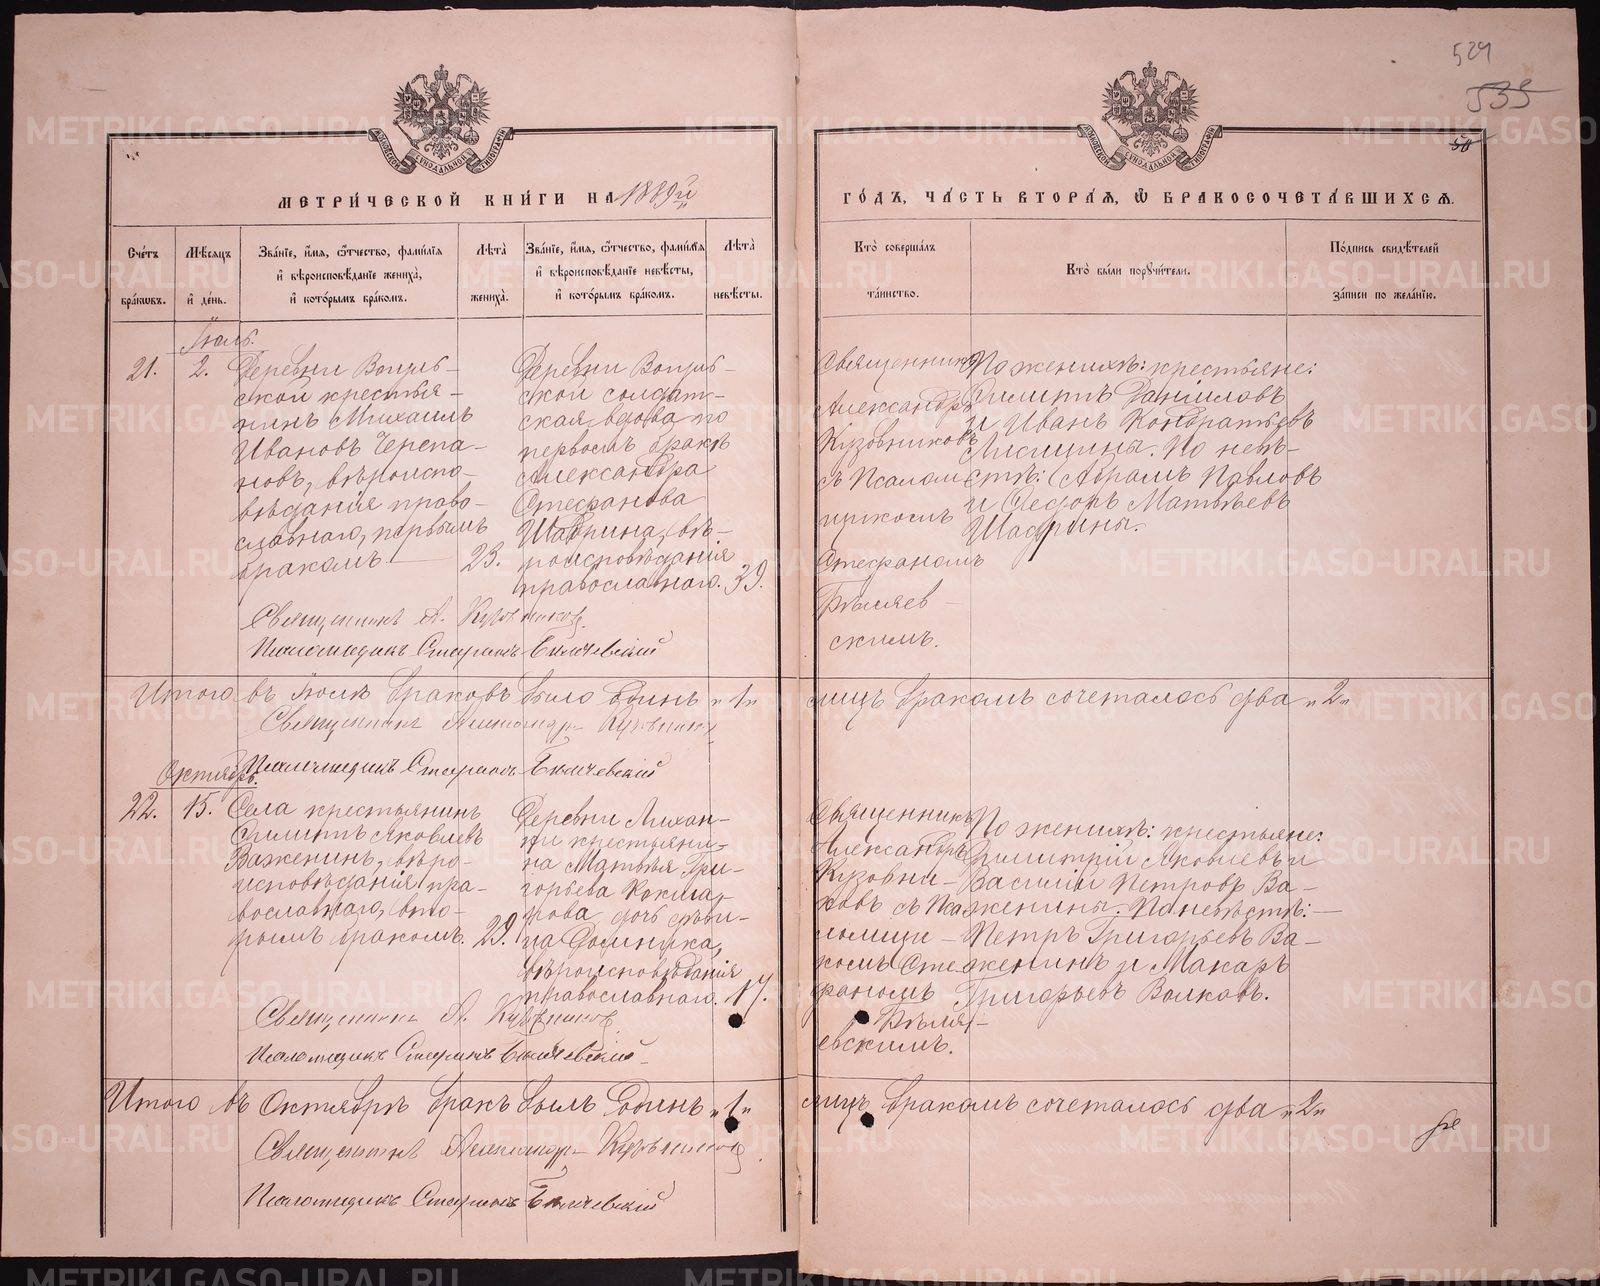 529
535
50
МЕТРИ́ЧЕСКОЙ КНИ́ГИ НА 1889й
ГО́ДЪ, ЧА́СТЬ ВТОРА́Я, Ѡ БРАКОСОЧЕТА́ВШИХСЯ.
Сче́тъ бра́кѡвъ.
Мѣ́сяцъ и де́нь.
Зва́нїе, и́мя, ѻ́тчество, фами́лїя и вѣроисповѣ́данїе жениха̀, и кото́рымъ бра́комъ.
Лѣта̀ жениха̀.
Зва́нїе, и́мя, ѻ́тчество, фами́лїя и вѣроисповѣ́данїе невѣ́сты, и кото́рымъ бра́комъ.
Лѣта̀ невѣ́сты.
Кто̀ соверша́лъ та́инство.
Кто̀ бы́ли порꙋчи́тели.
По́дпись свидѣ́телей за́писи по жела́нїю.
Іюль.
21.
2.
Деревни
ской крестья-
нинъ Михаилъ
Ивановъ Черепа-
новъ, вѣроиспо-
вѣданія право-
славнаго, первымъ
бракомъ.
23.
Деревни
ской солдат-
ская вдова по
первомъ бракѣ
Александра
Стефанова
Шадрина, вѣ-
роисповѣданія
православнаго.
39.
Священникъ
Александръ
Кузовниковъ
съ Псалом
щикомъ
Стефаномъ
Бѣляев-
скимъ.
По женихѣ: крестьяне:
Филиппъ Даниловъ
и Иванъ Кондратьевъ
Лисицины. По невѣ-
стѣ: Абрамъ Павловъ
и Федоръ Матвѣевъ
Шадрины.
Священникъ А. Кузовников
Псаломщикъ Стефанъ Бѣляевскій
Итого въ Іюлѣ браковъ было одинъ „1„
лицъ бракомъ сочеталось два „2„
Священникъ Александр Кузовников
Псаломщикъ Стефанъ Бѣляевскій
Октябрь.
22.
15.
Села крестьянинъ
Филиппъ Яковлевъ
Важенинъ, вѣро-
исповѣданія пра-
вославнаго, вто-
рымъ бракомъ.
29.
Деревни
ки крестьяни-
на Матвѣя Гри-
горьева
рова дочь дѣви-
ца Домника,
вѣроисповѣданія
православнаго.
17.
Священникъ
Александръ
Кузовни-
ковъ съ Пса
ломщи-
комъ Сте
фаномъ
Бѣля-
евскимъ.
По женихѣ: крестьяне:
Димитрій Яковлевъ и
Василій Петровъ Ва-
женины. По невѣстѣ:-
Петръ Григорьевъ Ва-
женинъ и Макаръ
Григорьевъ Волковъ.
Священникъ А. Кузовников
Псаломщикъ Стефанъ Бѣляевскій
Итого въ Октябрѣ бракъ былъ одинъ „1„
лицъ бракомъ сочеталось два „2„
Священникъ Александр Кузовников
Псаломщикъ Стефанъ Бѣляевскій
METRIKI.GASO-URAL.RU